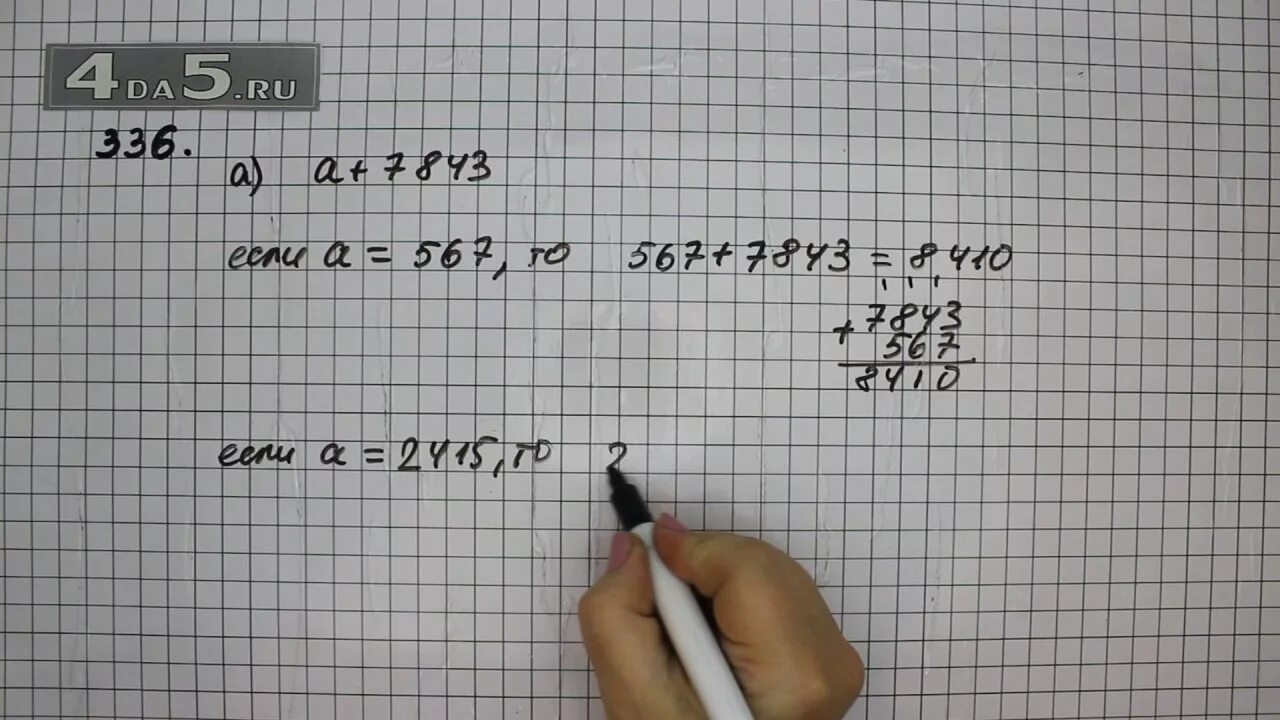 4DA5.RU
336.
а) a + 7843
если a = 567, то 567 + 7843 = 8410
+ 7843
567
8410
если a = 2415, то 2